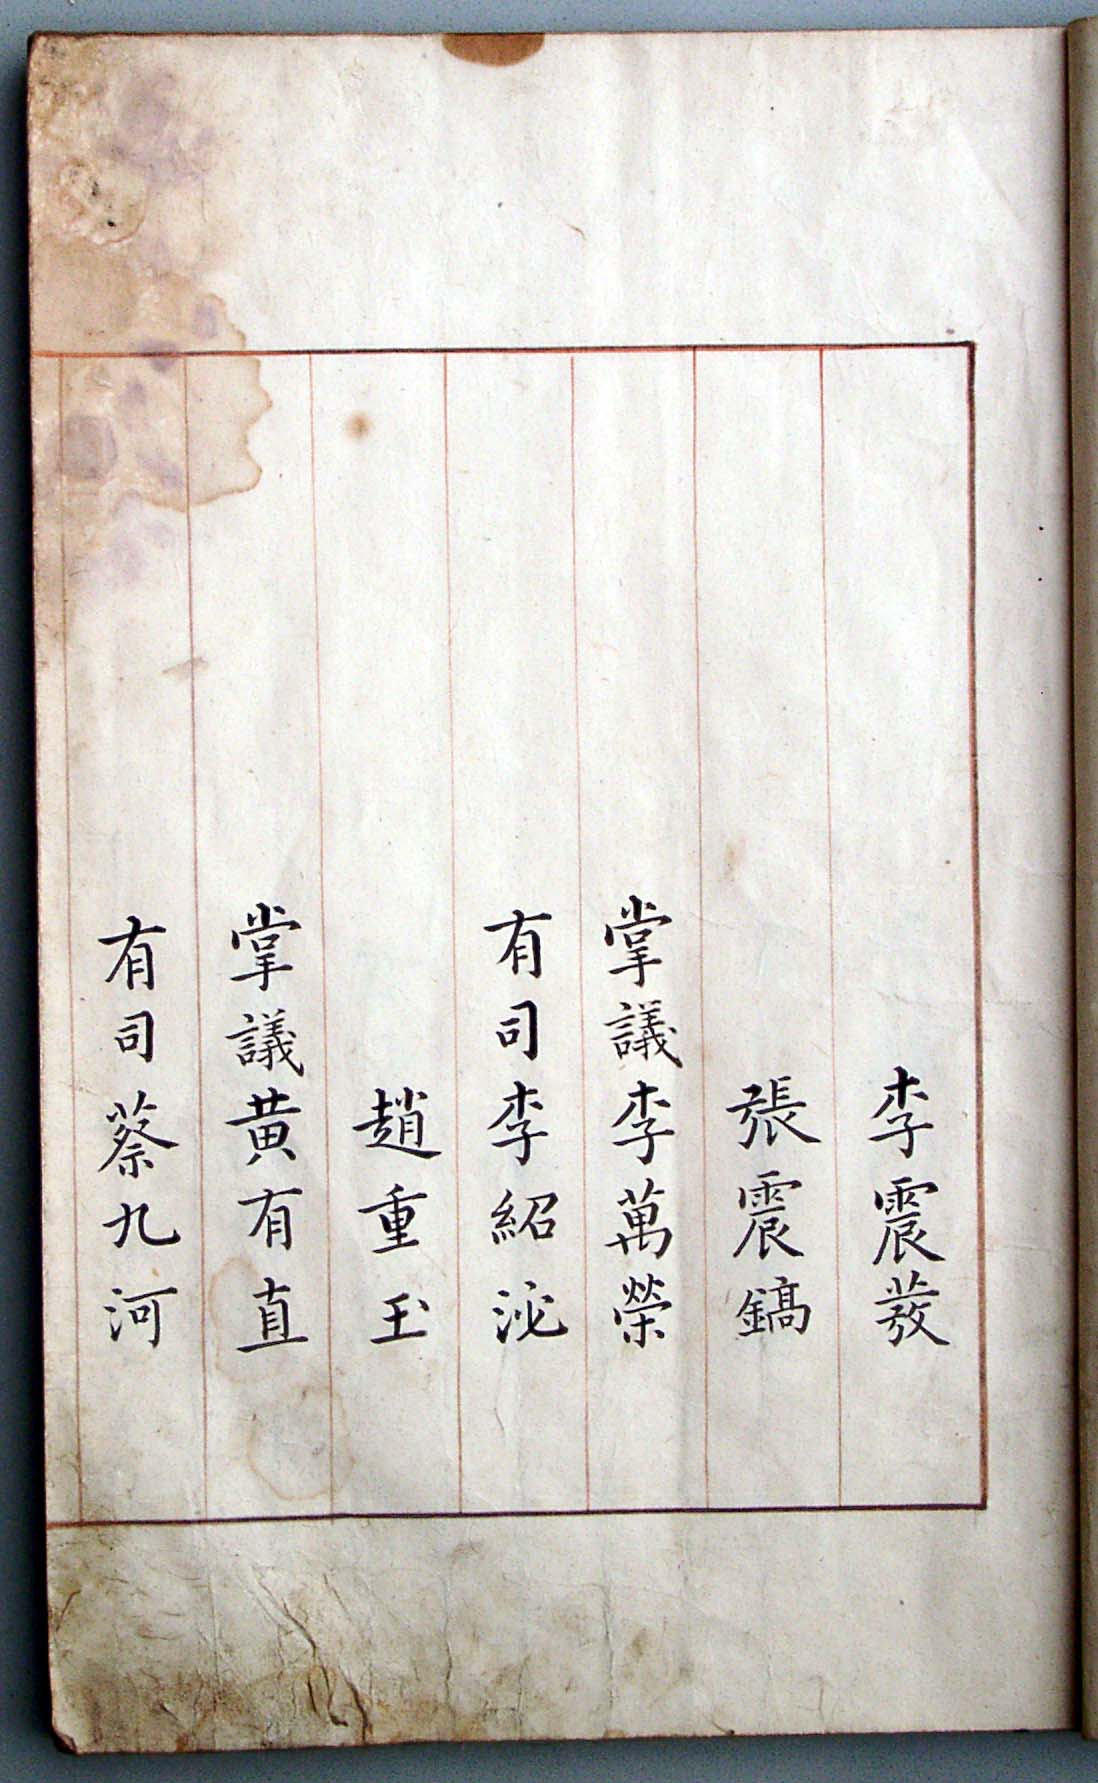 李震發
張震鎬
掌議李萬榮
有司李紹泌
趙重玉
掌議黄有直
有司蔡九河